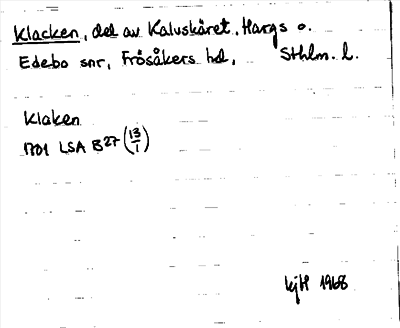 Klacken, del av Kalvskäret, Hargs o.
Edebo snr, Frösåkers hd, Sthlm. l.
Klaken
1701 LSA B27 (13/1)
kjH 1968